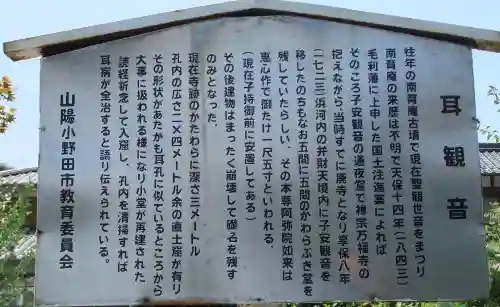 耳観音
往年の南育庵古墳で現在聖観世音をまつり
南育庵の来歴は不明で天保十四年（一八四三）
毛利藩に上申した国土注進案によれば
そのころ子安観音の通夜堂で禅宗万福寺の
抱えながら、当時すでに廃寺となり享保八年
（一七二三）浜河内の弁財天境内に子安観音を
移したのちもなお五間に五間のかわらぶき堂を
残していたらしい、その本尊阿弥陀如来は
恵心作で御たけ一尺五寸といわれる。
（現在子持御前に安置してある）
その後建物はまったく崩壊して礎名を残す
のみとなった。
現在寺跡のかたわらに深さ三メートル
孔内の広さ二×四メートル余の直土窟が有り
その形状があたかも耳孔に似ているところから
大事に扱われる様になり小堂が再建された
読経祈念して入窟し、孔内を清掃すれば
耳病が全治すると語り伝えられている。
山陽小野田市教育委員会